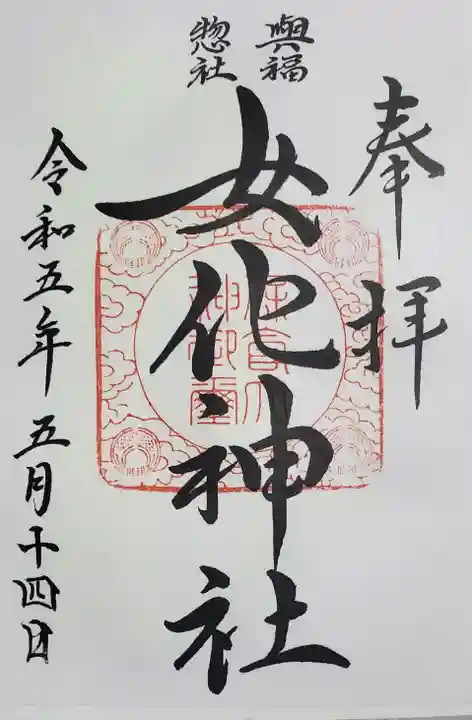 奉拝
興福
惣社
女化神社
令和五年五月十四日